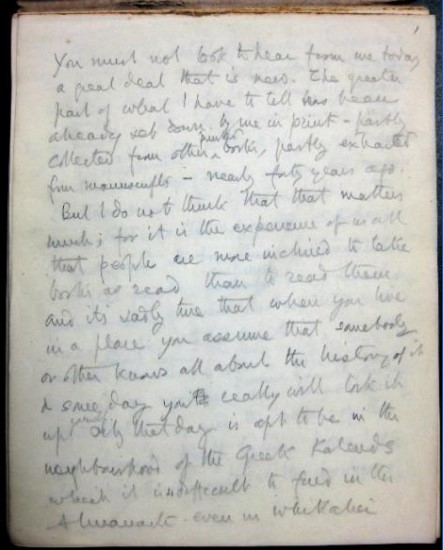 1
You must not look to hear from me today
a great deal that is new. The greater
part of what I have to tell has been
already set down by me in print - partly
collected from other printed books, partly extracted
from manuscripts - nearly forty years ago.
But I do not think that that matters
much; for it is the experience of us all
that people are more inclined to take
books as read than to read them
and its sadly true that when you live
in a place you assume that somebody
or other knows all about the history of it
& some day you really will look it
up: only that day is apt to be in the
neighbourhood of the Greek Kalends
which it is difficult to find in the
Almanack - even in Whitaker